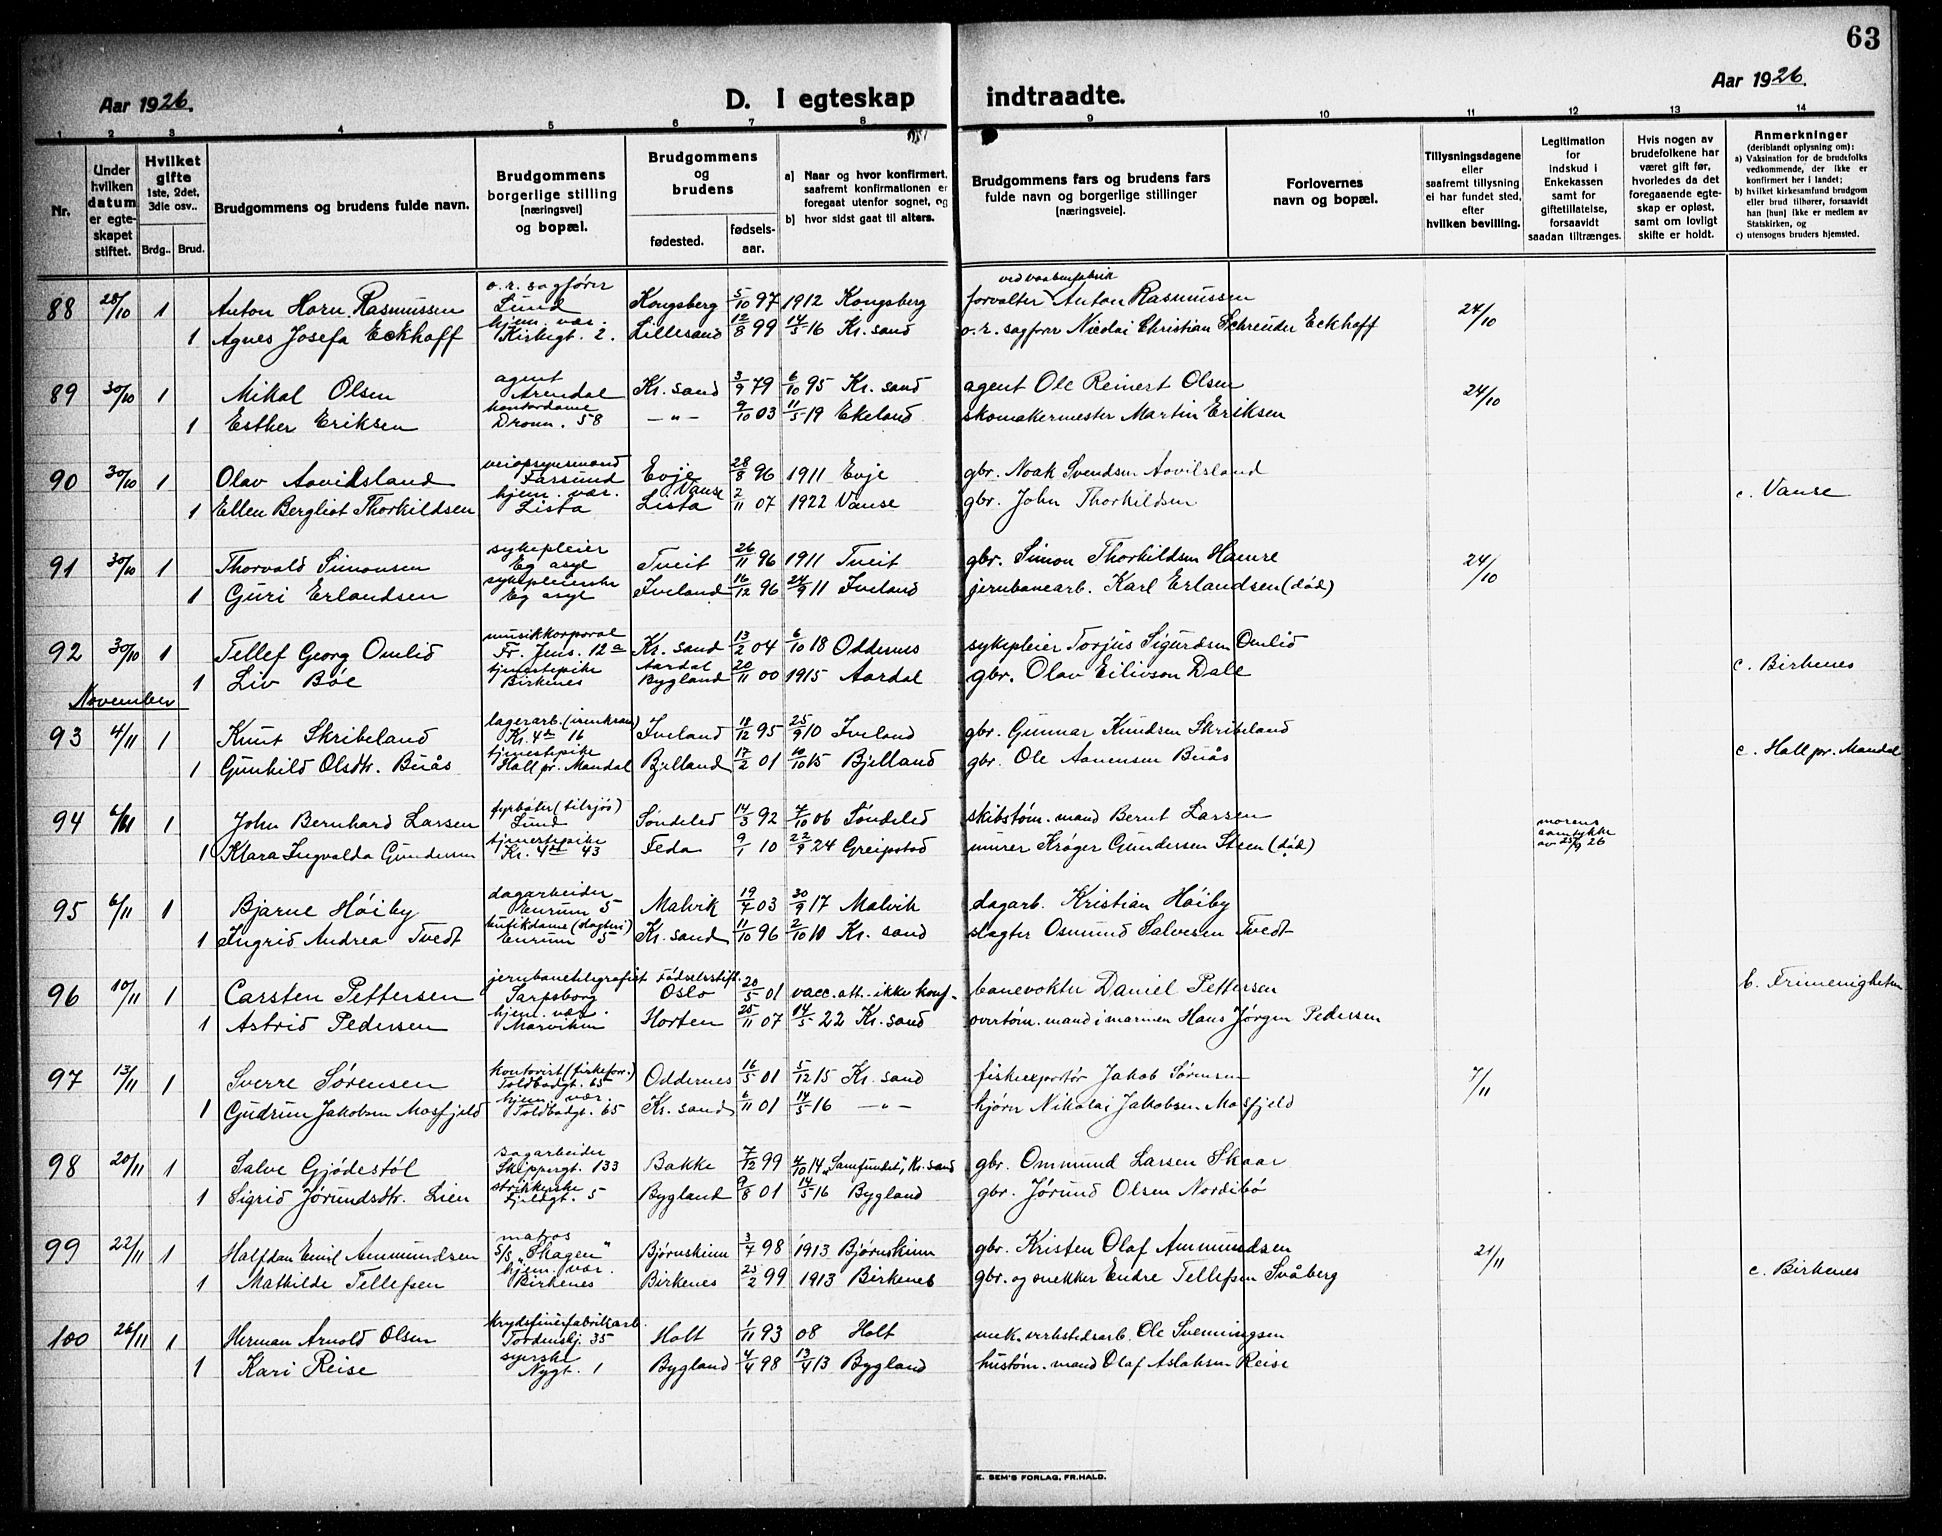 63
Aar 1926.
D. I egteskap indtraadte.
Aar 1926.
1 2 3 4 5 6 7 8 9 10 11 12 13 14
Nr.
Under hvilken datum er egteskapet stiftet.
Hvilket gifte 1ste, 2det, 3die osv.. Brdg.. Brud.
Brudgommens og brudens fulde navn.
Brudgommens borgerlige stilling [næringsvei] og bopæl.
Brudgommens og brudens fødested. fødselsaar.
a) Naar og hvor konfirmert, saafremt konfirmationen er foregaat utenfor sognet, og
b) hvor sidst gaat til alters.
Brudgommens fars og brudens fars fulde navn og borgerlige stillinger [næringsveie].
Forlovernes navn og bopæl.
Tillysningsdagene eller saafremt tillysning ei har fundet sted, efter hvilken bevilling.
Legitimation for indskud i Enkekassen samt for giftetillatelse, forsaavidt saadan tiltrænges.
Hvis nogen av brudefolkene har været gift før, hvorledes da det foregaaende egteskap er opløst, samt om lovligt skifte er holdt.
Anmerkninger (deriblandt oplysning om): a) Vaksination for de brudefolks vedkommende, der ikke er konfirmert her i landet; b) hvilket kirkesamfund brudgom eller brud tilhører, forsaavidt han [hun] ikke er medlem av Statskirken, og c) utensogns bruders hjemsted.
88 28/10 1 Anton Horn Rasmussen o.r. sagfører Lund Kongsberg 5/10 97 1912 Kongsberg forvalter ved vaabenfabrik Anton Rasmussen 24/10
1 Agnes Josefa Eckhoff hjem. vær. Kirkegt. 2. Lillesand 12/8 99 14/5 16 Kr. sand o.r. sagfører Nicolai Christian Schreuder Eckhoff
89 30/10 1 Mikal Olsen agent Arendal Kr. sand 3/9 79 6/10 95 Kr. sand agent Ole Reinert Olsen 24/10
1 Esther Eriksen kontordame Dronn. 58 —"— 9/10 03 11/5 19 Ekeland skomakermester Martin Eriksen
90 30/10 1 Olav Aavitsland veiopsynsmand Farsund Evje 28/8 96 1911 Evje gbr. Noak Svendsen Aavitsland
1 Ellen Bergliot Thorkildsen hjem. vær. Lista Vanse Lista 2/11 07 1922 Vanse gbr. John Thorkildsen c. Vanse
91 30/10 1 Thorvald Simonsen sykepleier Eg asyl Tveit 26/11 96 1911 Tveit gbr. Simon Thorkildsen Hamre 24/10
1 Guri Erlandsen sykepleierske Eg asyl Iveland 16/12 96 24/9 11 Iveland jernbanearb. Karl Erlandsen (død)
92 30/10 1 Tellef Georg Omlid musikkorporal Fr. Jens. 12a Kr. sand 13/2 04 6/10 18 Oddernes sykepleier Torjus Sigurdsen Omlid
1 Liv Bøe tjenestepike Birkenes Aardal Bygland 20/11 00 1915 Aardal gbr. Olav Eilivson Dale c. Birkenes
November
93 4/11 1 Knut Skribeland lagerarb. Kr. 4de 16 Iveland 18/12 95 25/9 10 Iveland gbr. Gunnar Knudsen Skribeland
1 Gunhild Olsdtr. Buås tjenestepike Hall pr. Mandal Bjelland 17/2 01 10/10 15 Bjelland gbr. Ole Aanensen Buås c. Hall pr. Mandal
94 6/11 1 John Bernhard Larsen fyrbøter (tilsjøs) Lund Søndeled 14/3 92 7/10 06 Søndeled skibstøm. mand Bernt Larsen
1 Klara Ingvalda Gundersen tjenestepike Kr. 4de 43 Feda 9/1 10 22/9 24 Greipstad murer Krøger Gundersen Steen (død) morens samtykke av 25/9 26
95 6/11 1 Bjarne Høiby dagarbeider Enrum 5 Malvik 19/7 03 30/9 17 Malvik dagarb. Kristian Høiby
1 Ingrid Andrea Tvedt butikdame (slagteri) Enrum 5 Kr. sand 11/10 96 2/10 10 Kr. sand slagter Osmund Salvesen Tvedt
96 10/11 1 Carsten Pettersen jernbanetelegrafist Sarpsborg Fødselsstift. Oslo 20/5 01 vacc. att. ikke konf. banevokter Daniel Pettersen b. Frimenigheten
1 Astrid Pedersen hjem. vær. Marviken Horten 25/11 07 14/5 22 Kr. sand overtøm. mand i marinen Hans Jørgen Pedersen
97 13/11 1 Sverre Sørensen kontorist (fiskeforr.) Toldbodgt. 65 Oddernes 16/5 01 5/12 15 Kr. sand fiskeexportør Jakob Sørensen 7/11
1 Gudrun Jakobsen Mosfjeld hjem. vær. Toldbodgt. 65 Kr. sand 6/11 01 14/5 16 —"— kjører Nikolai Jakobsen Mosfjeld
98 20/11 1 Salve Gjødestøl sagarbeider Skippergt. 133 Bakke 7/12 99 4/10 14 „Samfundet", Kr. sand gbr. Ommund Larsen Skaar
1 Sigrid Jørundsdtr. Lien strikkerske Fjeldgt. 5 Bygland 9/8 01 14/5 16 Bygland gbr. Jørund Olsen Nordibø
99 22/11 1 Halfdan Emil Ammundsen matros S/S „Skagen" Bjørnskinn 3/7 98 1913 Bjørnskinn gbr. Kristen Olaf Ammundsen 21/11
1 Mathilde Tellefsen hjem. vær. Birkenes Birkenes 23/2 99 1913 Birkenes gbr. og snekker Endre Tellefsen Svåberg c. Birkenes
100 26/11 1 Herman Arnold Olsen krydsfinerfabrikarb. Tordenskj. 35 Holt 1/11 93 08 Holt mek. verkstedsarb. Ole Svenningsen
1 Kari Reise syerske Nygt. 1 Bygland 4/4 98 13/4 13 Bygland hustøm. mand Olaf Aslaksen Reise
E. SEM'S FORLAG, FR.HALD.